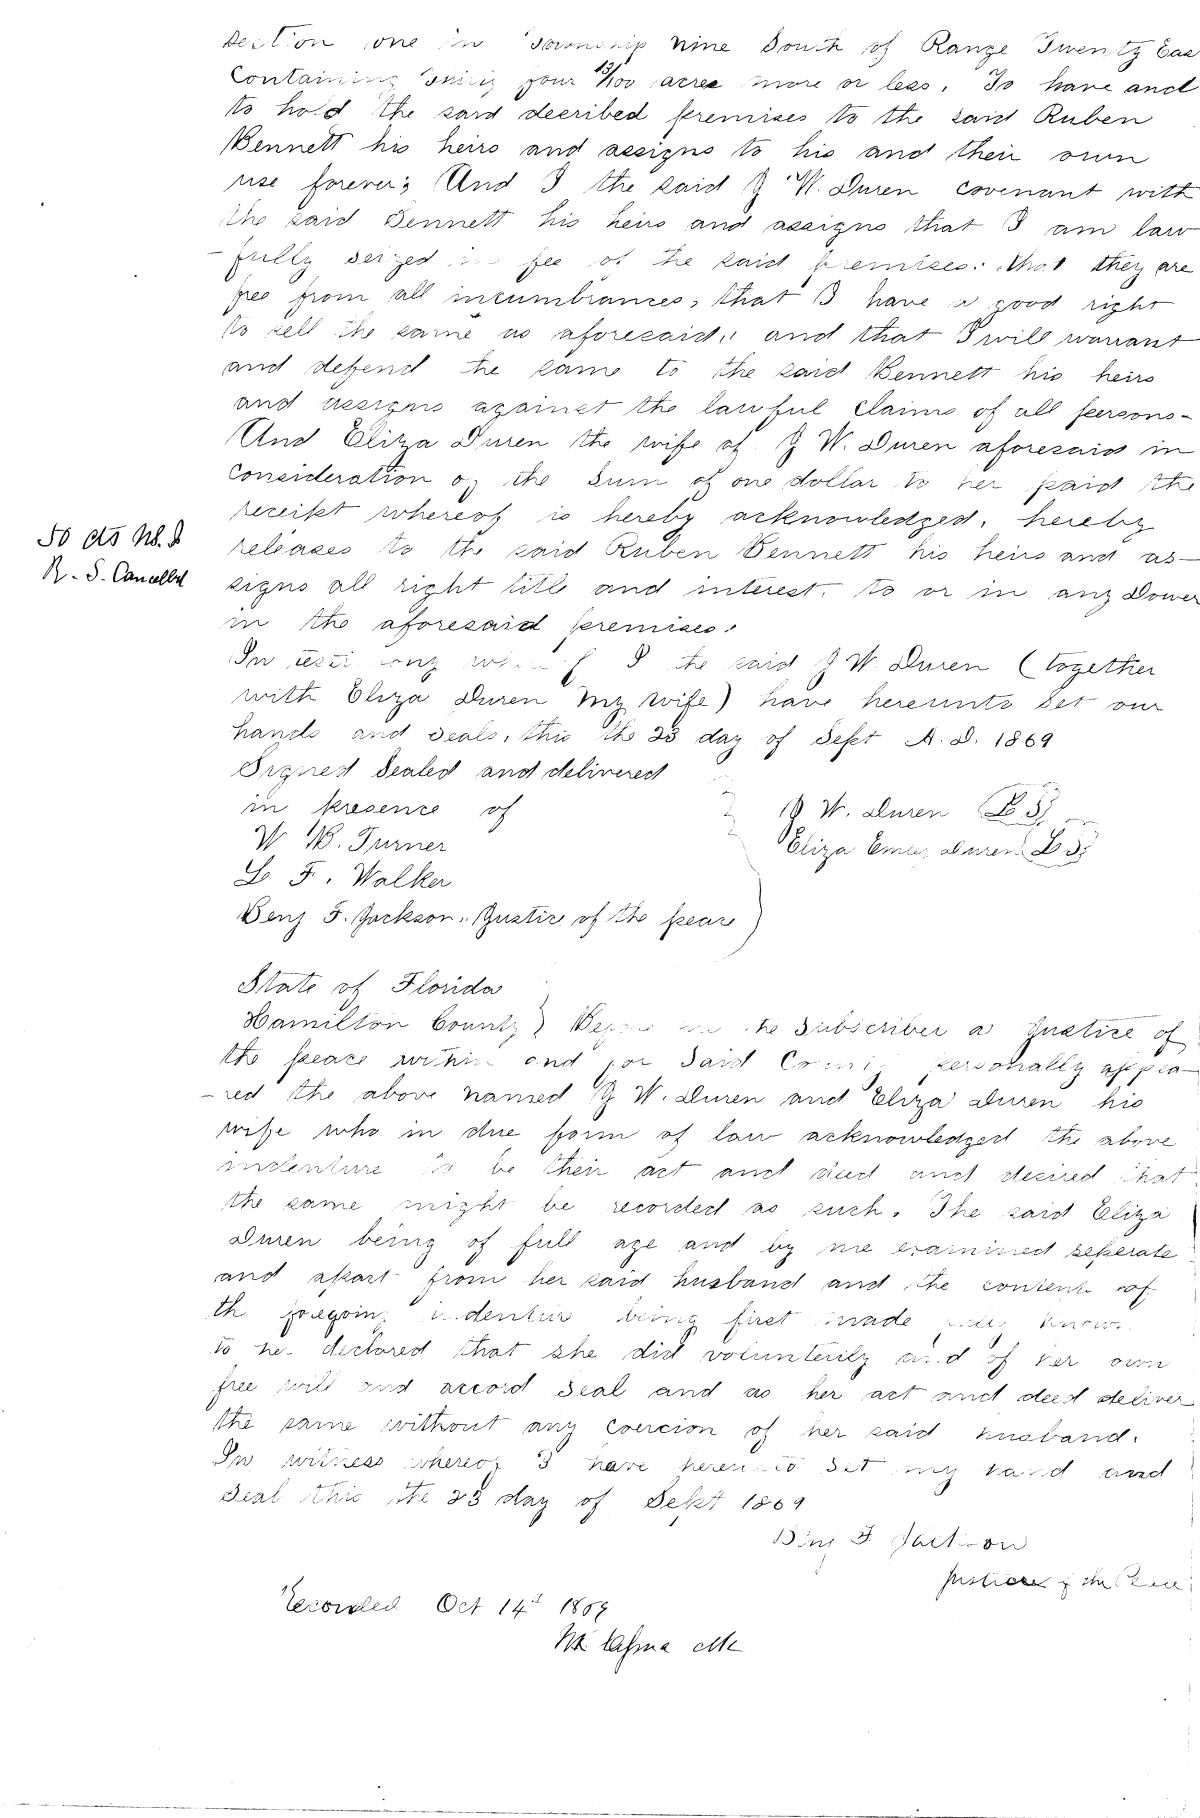 Section one in Township Nine South of Range Twenty Eas
Containing Thirty four 13/100 acres more or less. To have and
to hold the said decribed premises to the said Ruben
Bennett his heirs and assigns to his and their own
use forever; And I the said J W. Duren covenant with
the said Bennett his heirs and assigns that I am law
-fully seized in fee of the said premises: that they are
free from all incumbrances, that I have a good right
to sell the same as aforesaid, and that I will warrant
and defend the same to the said Bennett his heirs
and assigns against the lawful claims of all persons-
And Eliza Duren the wife of J W. Duren aforesaid in
Consideration of the Sum of one dollar to her paid the
receipt whereof is hereby acknowledged, hereby
50 cts
R. S. Cancelled
releases to the said Ruben Bennett his heirs and as-
signs all right title and interest. to or in any Dower
in the aforesaid premises.
In testimony whereof I the said J W. Duren (together
with Eliza Duren my wife) have hereunto set our
hands and seals, this the 23 day of Sept A. D. 1869
Signed Sealed and delivered
in presence of
J W. Duren L S
W B. Turner
Eliza Duren L S
L F. Walker
Benj F. Jackson. Justice of the peace
State of Florida
Hamilton County } Before me the Subscriber a Justice of
the peace within and for Said County personally appea-
-red the above named J W. Duren and Eliza Duren his
wife who in due form of law acknowledged the above
indenture to be their act and deed and desired that
the same might be recorded as such. The said Eliza
Duren being of full age and by me examined seperate
and apart from her said husband and the contents of
the foregoing indenture being first made fully known
to her declared that she did volunterily and of her own
free will and accord Seal and as her act and deed deliver
the same without any Coercion of her said husband.
In witness whereof I have hereunto Set my hand and
Seal this the 23 day of Sept 1869
Benj F. Jackson
Justice of the Peace
Recorded Oct 14th 1869